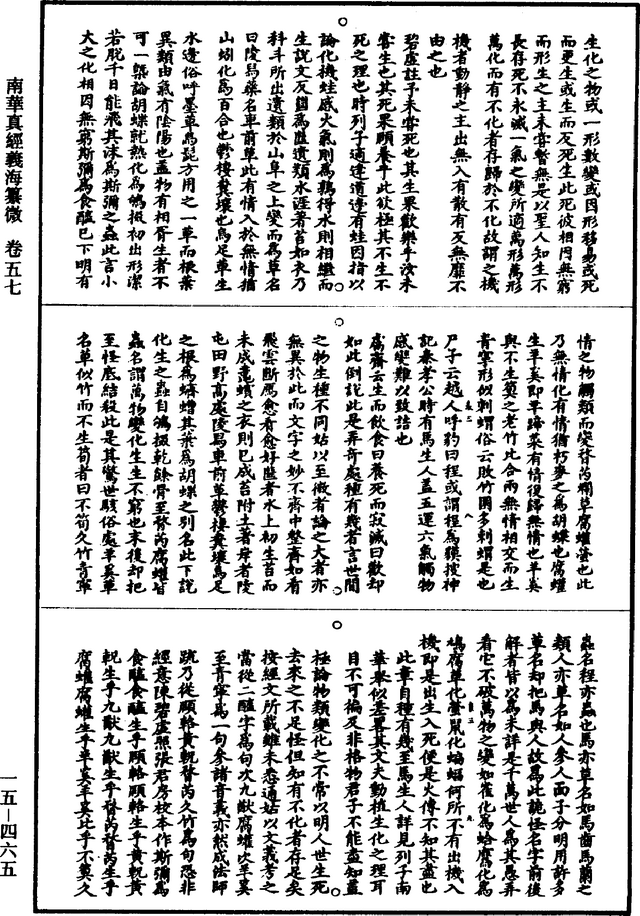 生化之物或一形數變或因形移易或死
而更生或生而反死生此死彼相因無窮
而形生之主未嘗暫無是以聖人知生不
長存死不永滅一氣之變所適萬形萬形
萬化而有不化者存歸於不化故謂之機
機者動靜之主出無入有散有反無靡不
由之也
碧虛註予未嘗死也其生果歡樂乎汝未
嘗生也其死果頤養乎此欲極其不生不
死之理也時列子適逢道邊有蛙因指以
論化機蛙感火氣則為鶉得水則相繼而
生説文反𢇍為㡭遺類水涯著苔如衣乃
科斗所出遺類於山阜之上變而為草名
曰陵舄藥名車前草此有情入於無情猶
山蚓化為百合也鬱棲糞壤也烏足草生
水邊俗呼墨草烏髭方用之一草而根葉
異類由氣有陰陽也蓋物有相胥生者不
可一槩論胡蝶就熱化為鴝掇初出形潔
若脫千日能飛其沫為斯彌之蟲此言小
大之化相因無窮斯彌為食醯已下明有
情之物觸類而變瞀芮爛草腐蠸螢也此
乃無情化有情猶朽麥之為胡蝶也腐蠸
生羊奚即羊蹄菜有情復歸無情也羊奚
與不生筍之老竹此合兩無情相交而生
青寧形似刺蝟俗云敗竹園多刺蝟是也
尸子云越人呼豹曰程或謂程為貘搜神
記秦孝公時有馬生人蓋五運六氣觸物
感變難以致詰也
鬳齋云生而飲食曰養死而寂滅曰歡却
如此倒說此是弄奇處種有幾者言世間
之物生種不同姑以至微者論之大者亦
無異於此而文字之妙不齊中整齊如看
飛雲斷鴈愈看愈好㡭者水上初生苔而
未成鼃蠙之衣則已成苔附土著岸者陵
屯田野高處陵舄車前草鬱棲糞壤烏足
之根為蠐螬其葉為胡蝶之別名此下說
化生之蟲自鴝掇乾餘骨至瞀芮腐蠸皆
蟲名謂萬物變化生生不窮也末後却把
至怪底結殺此是其驚世駭俗處羊奚草
名草似竹而不生筍者曰不筍久竹青寧
蟲名程亦蟲也馬亦草名如馬齒馬蘭之
類人亦草名如人參人面子分明用許多
草名却把馬與人故為此詭怪名字前後
解者皆以為未詳是千萬世人為其愚弄
看它不破萬物之變如雀化為蛤腐化為
鳩腐草化螢鼠化蝙蝠何所不有出機入
機即是出生入死便是火傳不知其盡也
此章自種有幾至馬生人詳見列子南
華舉似差畧其文夫動植生化之理耳
目不可徧及非格物君子不能盡知蓋
極論物類變化之不常以明人世生死
去來之不足怪但知有不化者存足矣
按經文所載雖未悉通姑以文義考之
當從二醯字為句次九猷腐蠸次羊奚
至青寧為一句參諸音義亦然成法師
疏乃從頤輅黄軦瞀芮久竹為句恐非
經意陳碧虛照張君房校本作斯彌為
食醯食醯生乎頤輅頤輅生乎黄軦黄
軦生乎九猷九猷生乎瞀芮瞀芮生乎
腐蠸腐蠸生乎羊奚羊奚比乎不箰久
南華真經義海纂微 卷五七
一五—四六五